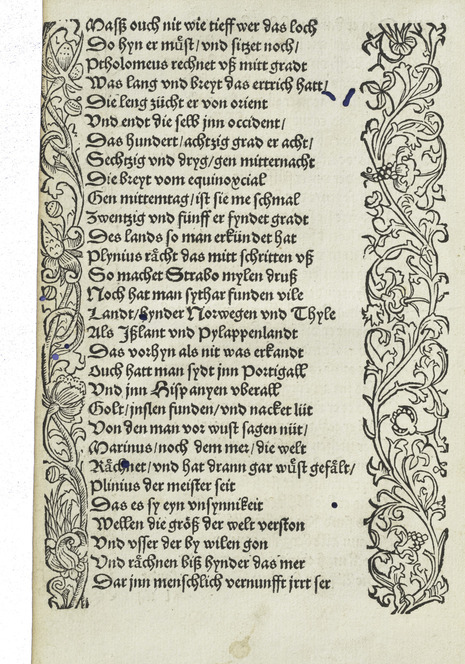 Maſß ouch nit wie tieff wer das loch
Do hyn er muͤſt/vnd ſitzet noch/
Ptholomeus rechnet vß mitt gradt
Was lang vnd breyt das ertrich hatt/
Die leng zücht er von orient
Vnd endt die ſelb jnn occident/
Das hundert/achtzig grad er acht/
Sechtzig vnd dryg/gen mitternacht
Die breyt vom equinoxcial
Gen mittemtag/iſt ſie me ſchmal
Zwentzig vnd fünff er fyndet gradt
Des lands ſo man erkündet hat
Plynius raͤcht das mitt ſchritten vß
So machet Strabo mylen druß
Noch hat man ſythar funden vile
Landt/hynder Norwegen vnd Thyle
Als Jßlant vnd Pylappenlandt
Das vorhyn als nit was erkandt
Ouch hatt man ſydt jnn Portigall
Vnd jnn Hiſpanyen vberall
Golt/jnſlen funden/vnd nacket lüt
Von den man vor wuſt ſagen nüt/
Marinus/noch dem mer/die welt
Raͤchnet/vnd hat drann gar wuͤſt gefaͤlt/
Plinius der meiſter ſeit
Das es ſy eyn vnſynnikeit
Wellen die größ der welt verſton
Vnd vſſer der by wilen gon
Vnd raͤchnen biß hynder das mer
Dar jnn menſchlich vernunfft jrrt ſer